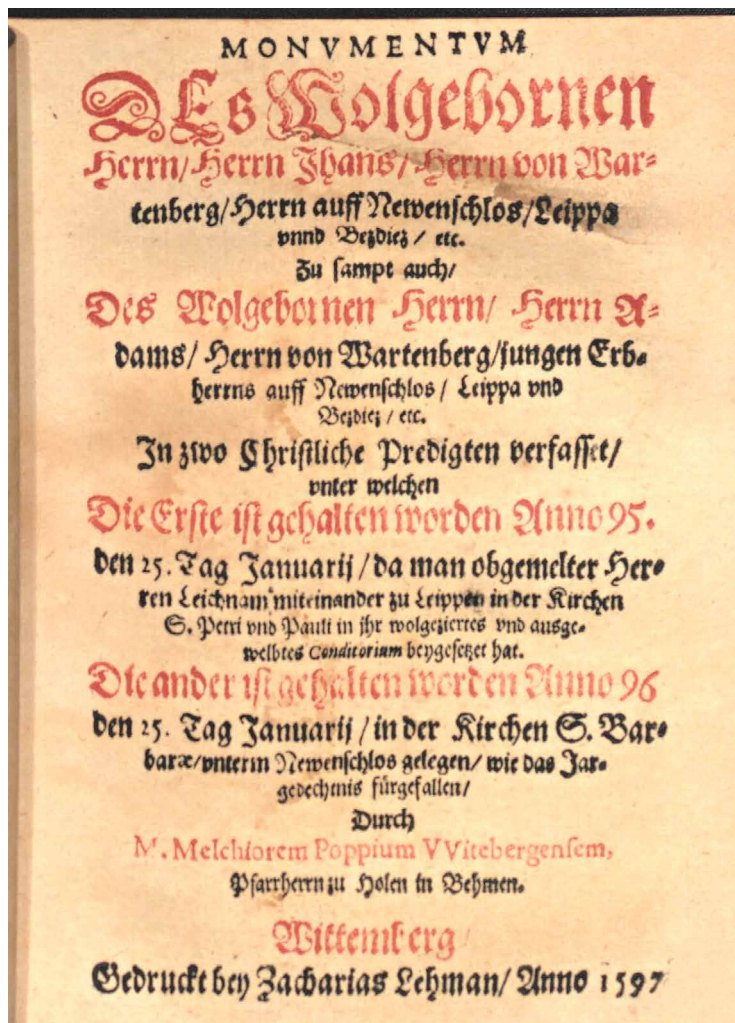 MONVMENTVM
DEs Wolgebornen
Herrn/ Herrn Jhans/ Herrn von War-
tenberg/ Herrn auff Newenschlos/ Leippa
vnnd Bezdiez/ etc.
Zu sampt auch/
Des Wolgebornen Herrn/ Herrn A-
dams/ Herrn von Wartenberg/ jungen Erb-
herrns auff Newenschlos/ Leippa vnd
Bezdiez/ etc.
In zwo Christliche Predigten verfasset/
vnter welchen
Die Erste ist gehalten worden Anno 95.
den 25. Tag Januarij/ da man obgemelter Her-
ren Leichnam miteinander zu Leippen in der Kirchen
S. Petri vnd Pauli in jhr wolgeziertes vnd ausge-
welbtes Conditorium beygesetzet hat.
Die ander ist gehalten worden Anno 96
den 25. Tag Januarij/ in der Kirchen S. Bar-
baræ/ vnterm Newenschlos gelegen/ wie das Jar-
gedechtnis fürgefallen/
Durch
M. Melchiorem Poppium VVitebergensem,
Pfarrherrn zu Holen in Behmen.
Wittemberg/
Gedruckt bey Zacharias Lehman/ Anno 1597